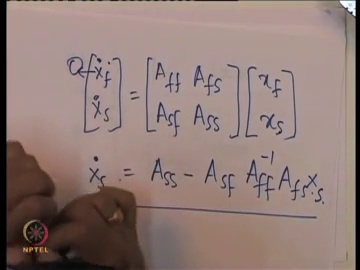 0← [ẋ_f ẋ_s] = [A_ff A_fs A_sf A_ss] [x_f x_s]
ẋ_s = A_ss - A_sf A_ff^-1 A_fs x_s.
NPTEL